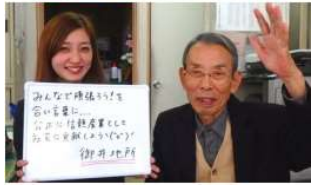 みんなで頑張ろう!を
合い言葉に...
公正な信頼産業として
お客に貢献しよう(^o^)
御井地所